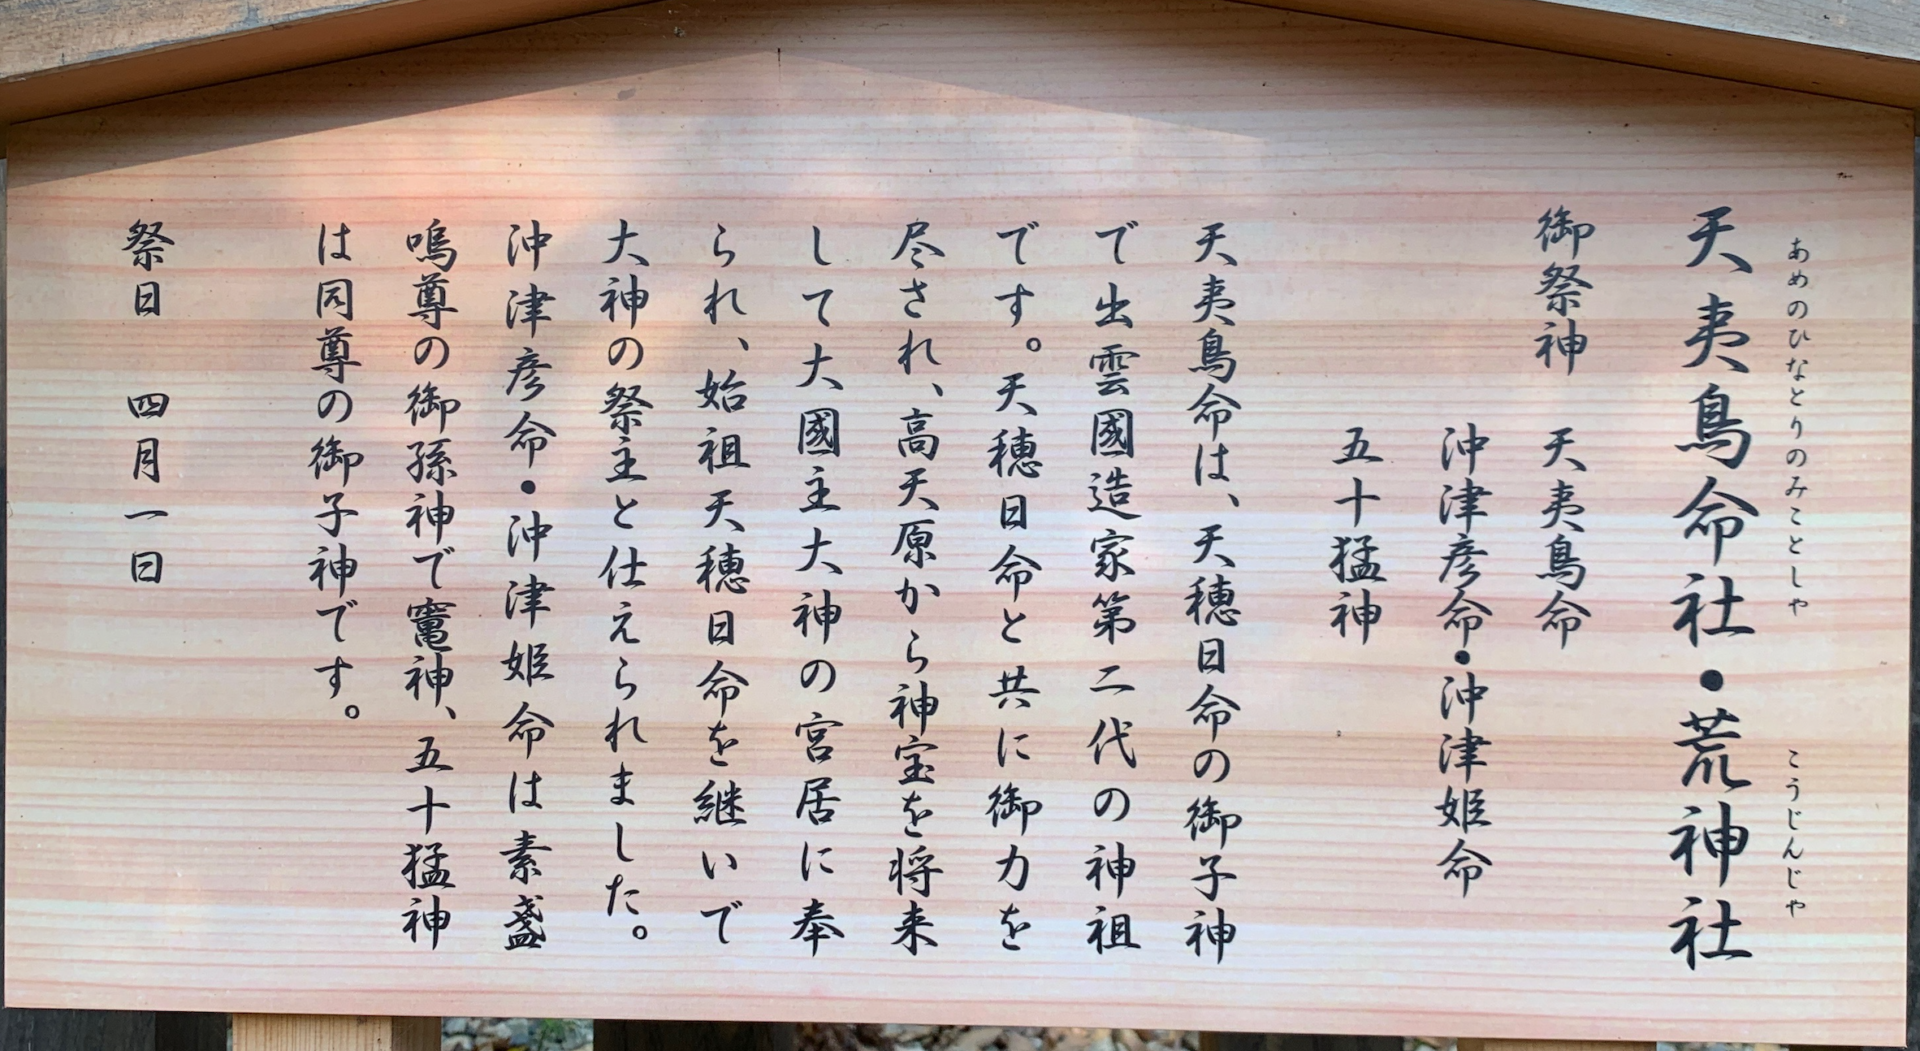 天夷鳥命社・荒神社
あめのひなとりのみことしゃ
こうじんじゃ
御祭神 天夷鳥命
沖津彦命・沖津姫命
五十猛神
天夷鳥命は、天穂日命の御子神
で出雲國造家第二代の神祖
です。天穂日命と共に御力を
尽され、高天原から神宝を将来
して大國主大神の宮居に奉
られ、始祖天穂日命を継いで
大神の祭主と仕えられました。
沖津彦命・沖津姫命は素盞
嗚尊の御孫神で竃神、五十猛神
は同尊の御子神です。
祭日 四月一日